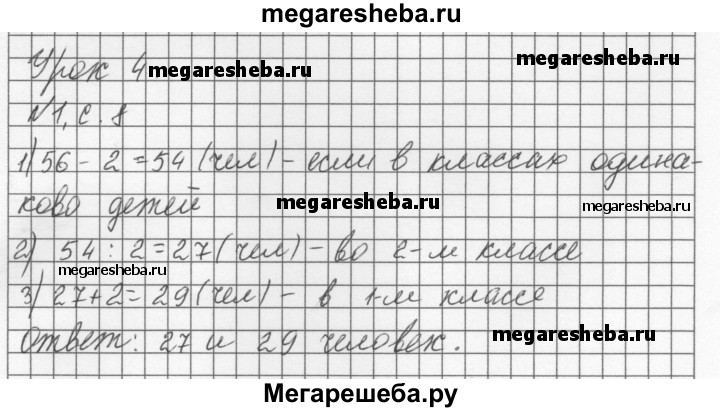 megaresheba.ru
Урок 4 megaresheba.ru megaresheba.ru
№1, с. 8
1) 56 - 2 = 54 (чел) - если в классах одина-
ково детей megaresheba.ru megaresheba.ru
2) 54 : 2 = 27 (чел) - во 2-м классе
megaresheba.ru
3) 27 + 2 = 29 (чел) - в 1-м классе
Ответ: 27 и 29 человек. megaresheba.ru
Мегарешеба.ру